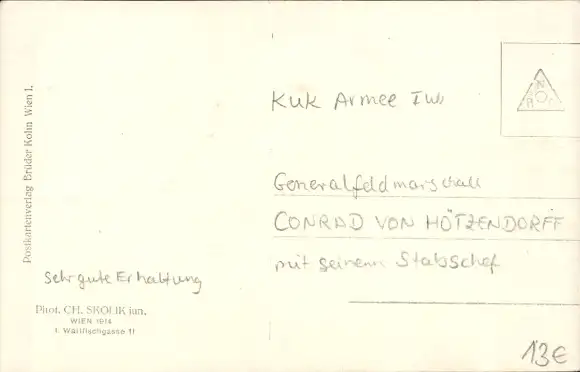 Postkartenverlag Brüder Kohn Wien I.
KuK Armee IWK
Generalfeldmarschall
CONRAD VON HÖTZENDORFF
mit seinem Stabschef
sehr gute Erhaltung
Phot. CH. SKOLIK jun.
WIEN 1914
I. Wallfischgasse 11
13€